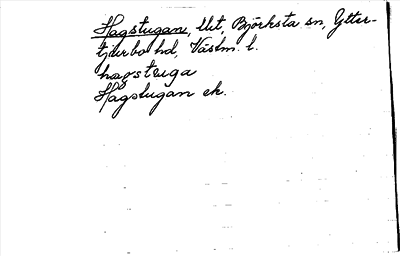 Hagstugan, tllt, Björksta sn, Ytter-
tjurbo hd, Västm. l.
hagstuga
Hagstugan ek.